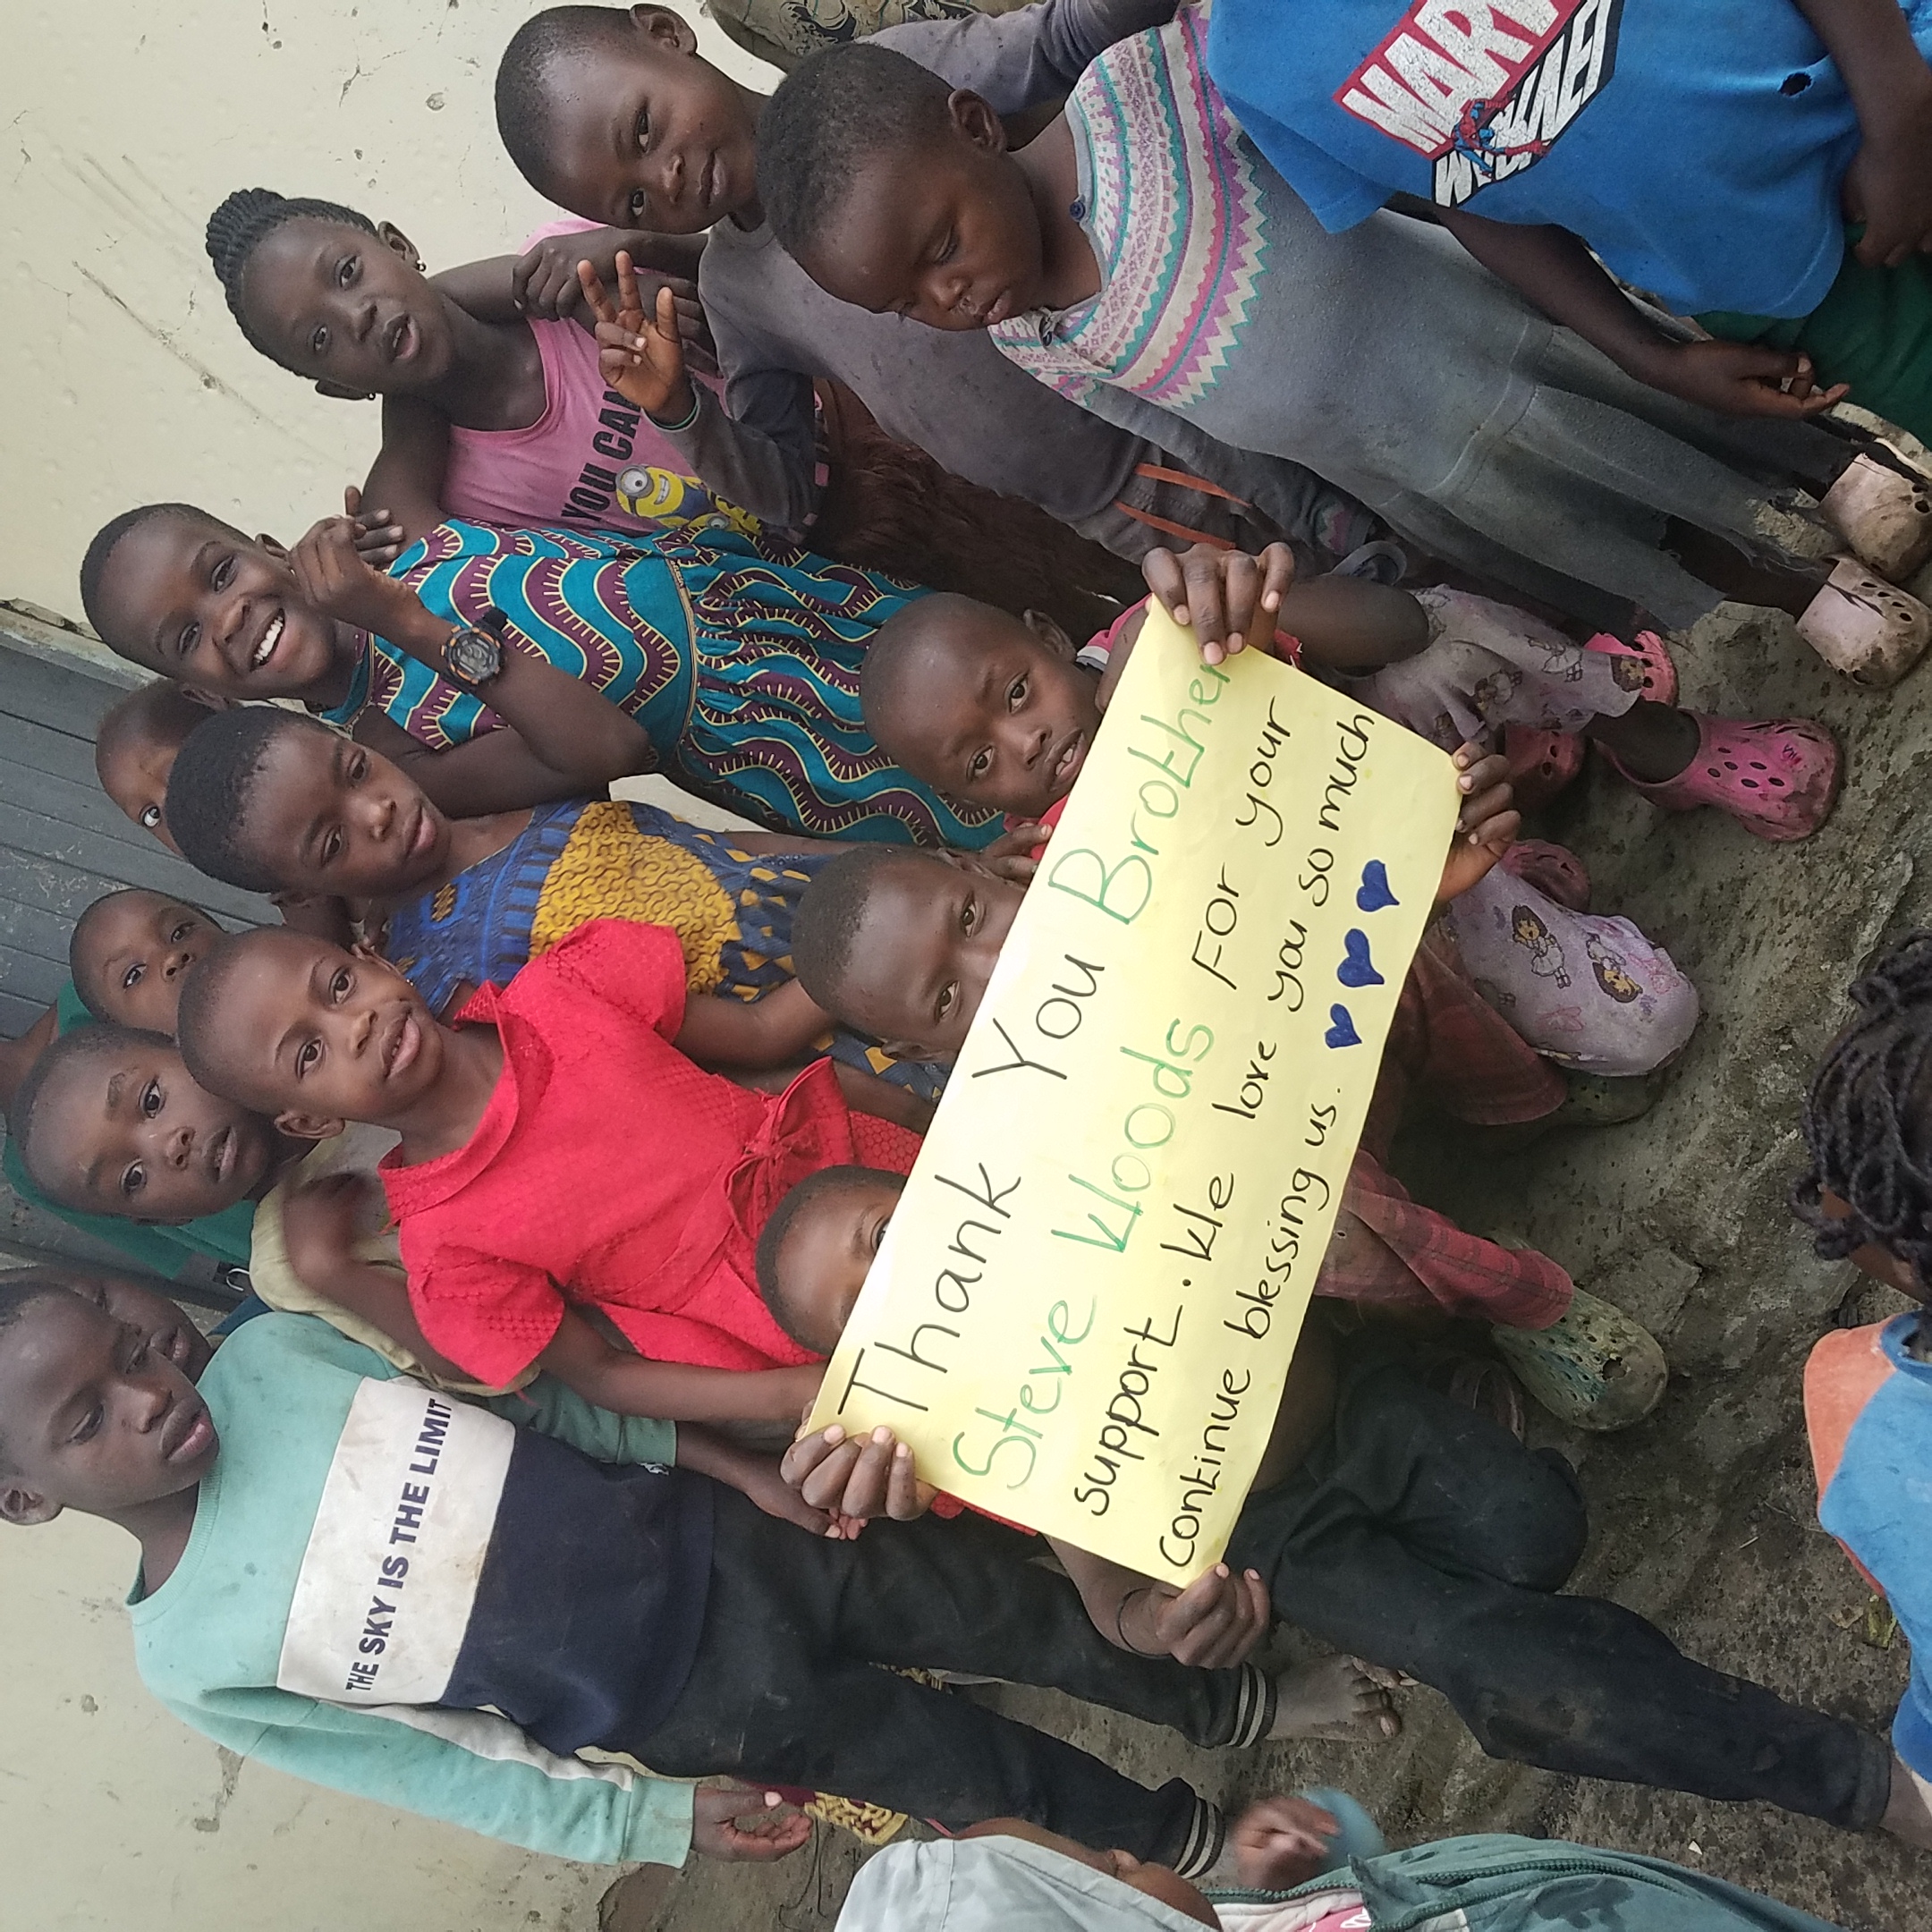 THE SKY IS THE LIMIT
YOU CAN
Thank You Brother
Steve Woods For your
support. We love you so much
continue blessing us.
MAR